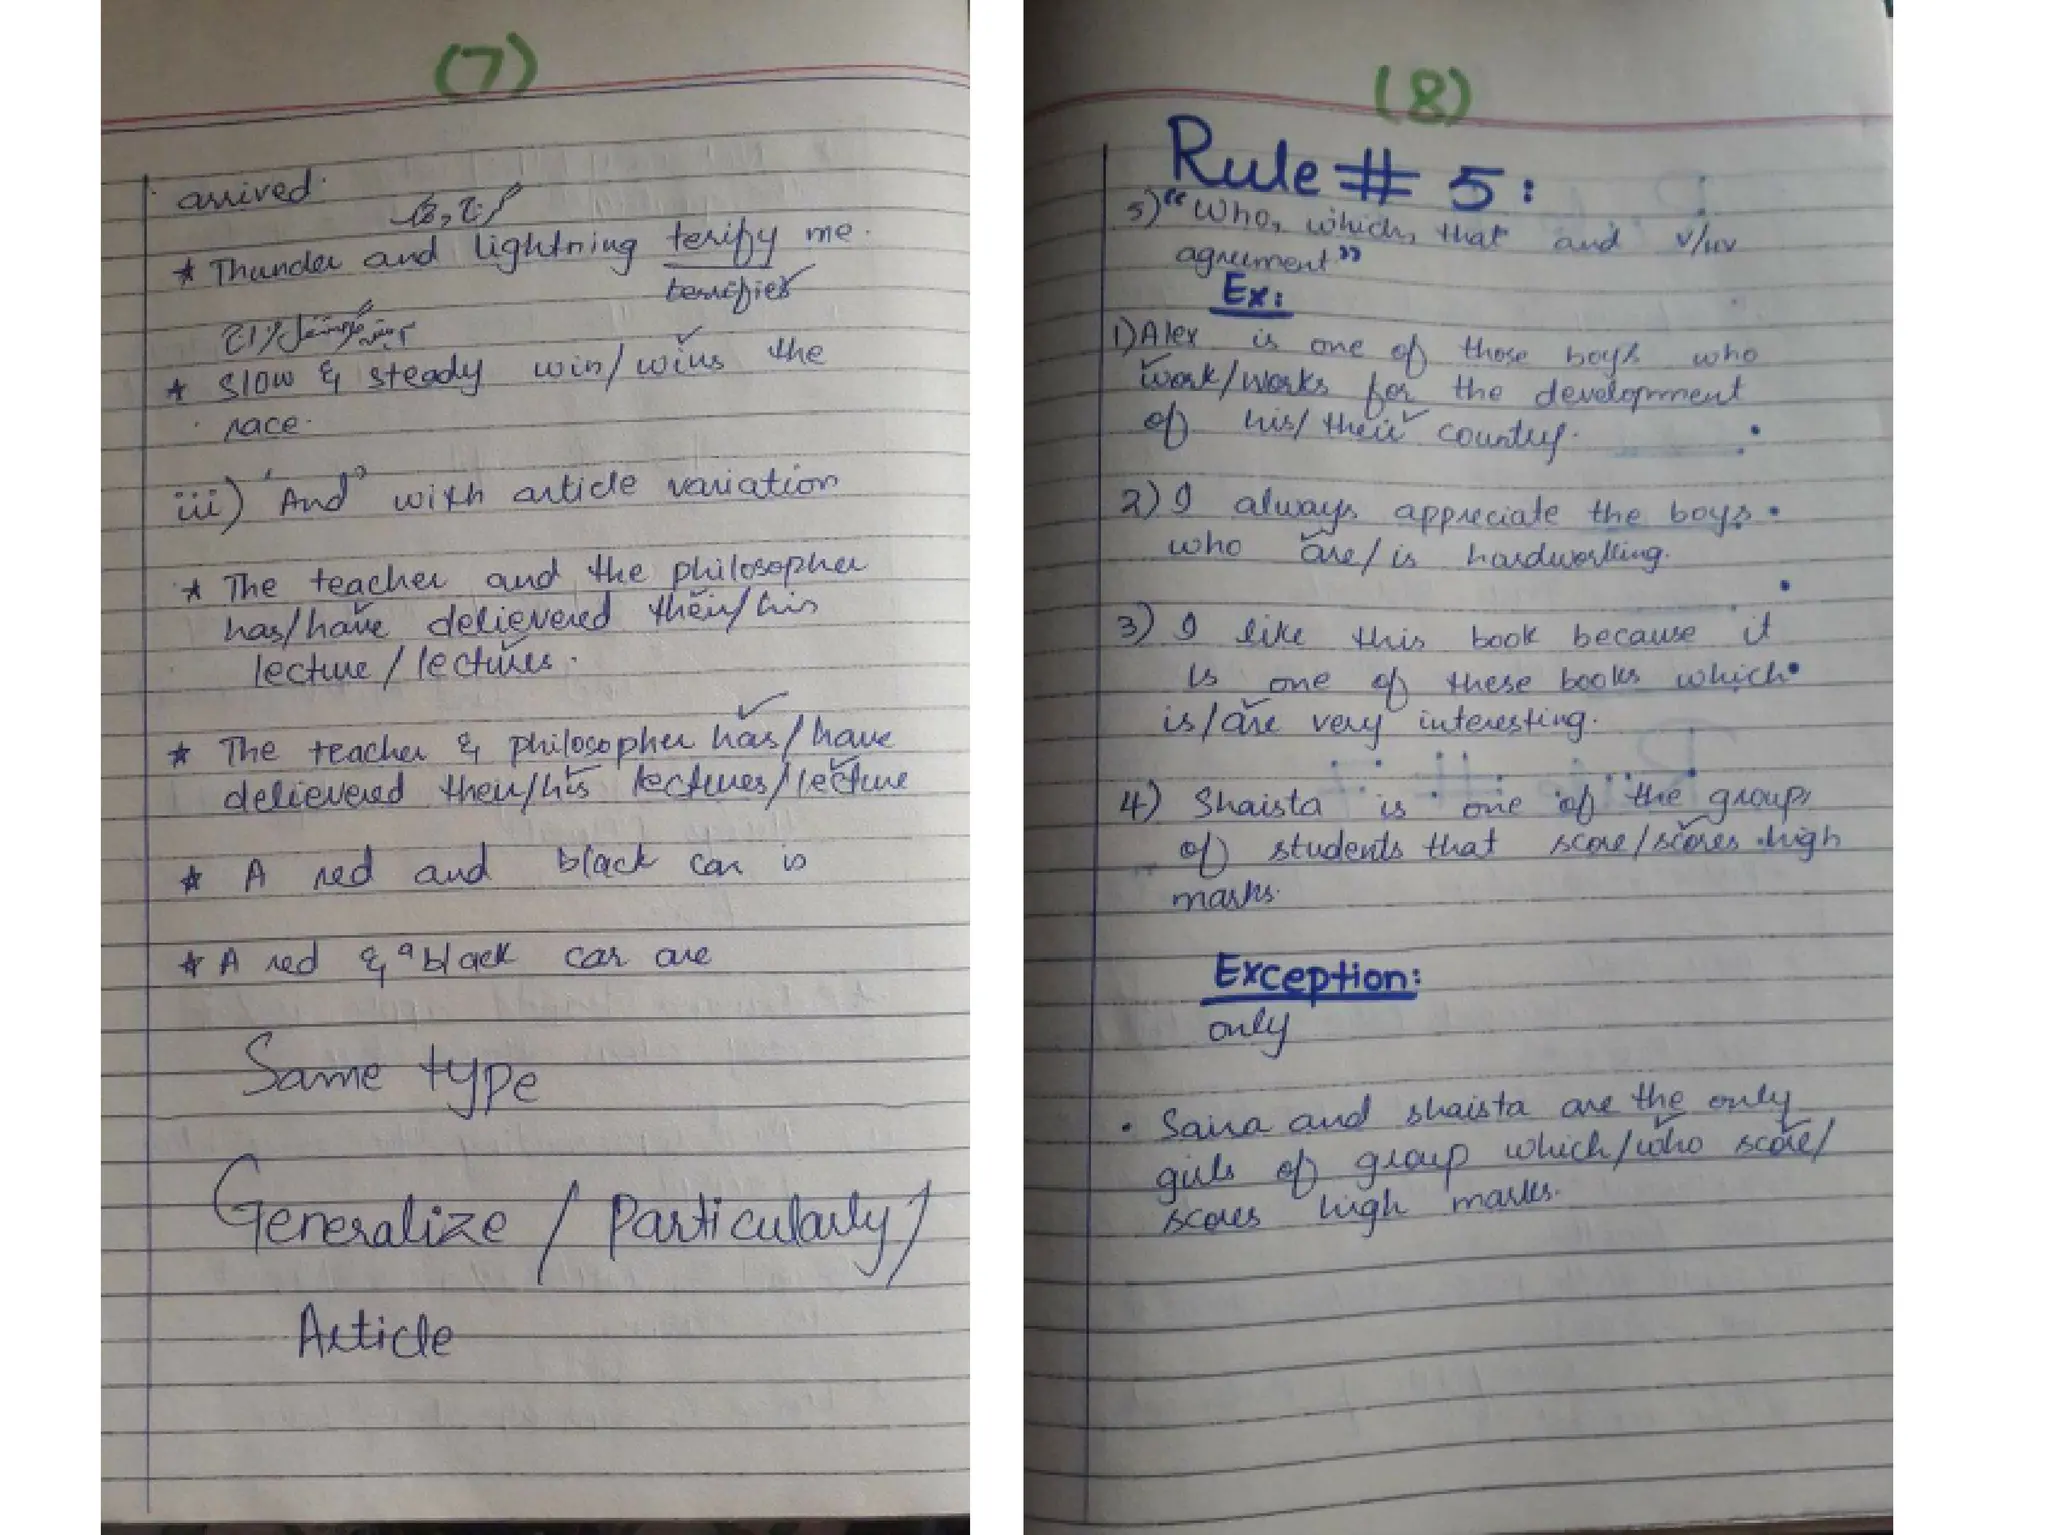 (7)
arrived.
* Thunder and lightning terify me.
terrifies
* Slow & steady win/wins the
race.
iii) "And" with article variation
* The teacher and the philosopher
has/have delievered their/his
lecture/lectures.
* The teacher & philosopher has/have
delievered their/his lectures/lecture
* A red and black car is
* A red & a black car are
Same type
Generalize / Particularly /
Article
(8)
Rule # 5:
5) "Who, which, that and v/hv
agreement"
Ex:
1) Alex is one of those boys who
work/works for the development
of his/their country.
2) I always appreciate the boys
who are/is hardworking.
3) I like this book because it
is one of these books which
is/are very interesting.
4) Shaista is one of the group
of students that score/scores high
marks.
Exception:
only
• Saira and shaista are the only
girls of group which/who score/
scores high marks.